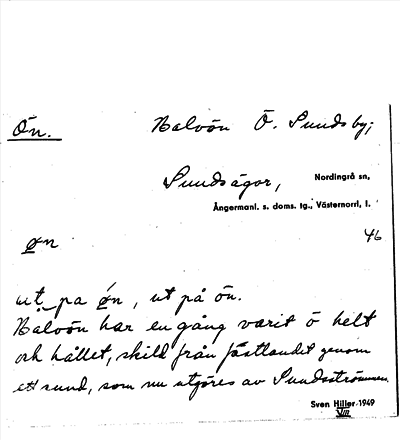 Ön.
Halvön Ö. Sundsby;
Sundsägor, Nordingrå sn,
Ångermanl. s. doms. tg., Västernorrl, l.
øn 46
ut pa ǿn, ut på ön.
Halvön har en gång varit ö helt
och hållet, skild från fastlandet genom
ett sund, som nu utgöres av Sundsströmmen.
Sven Hiller 1949
VIII